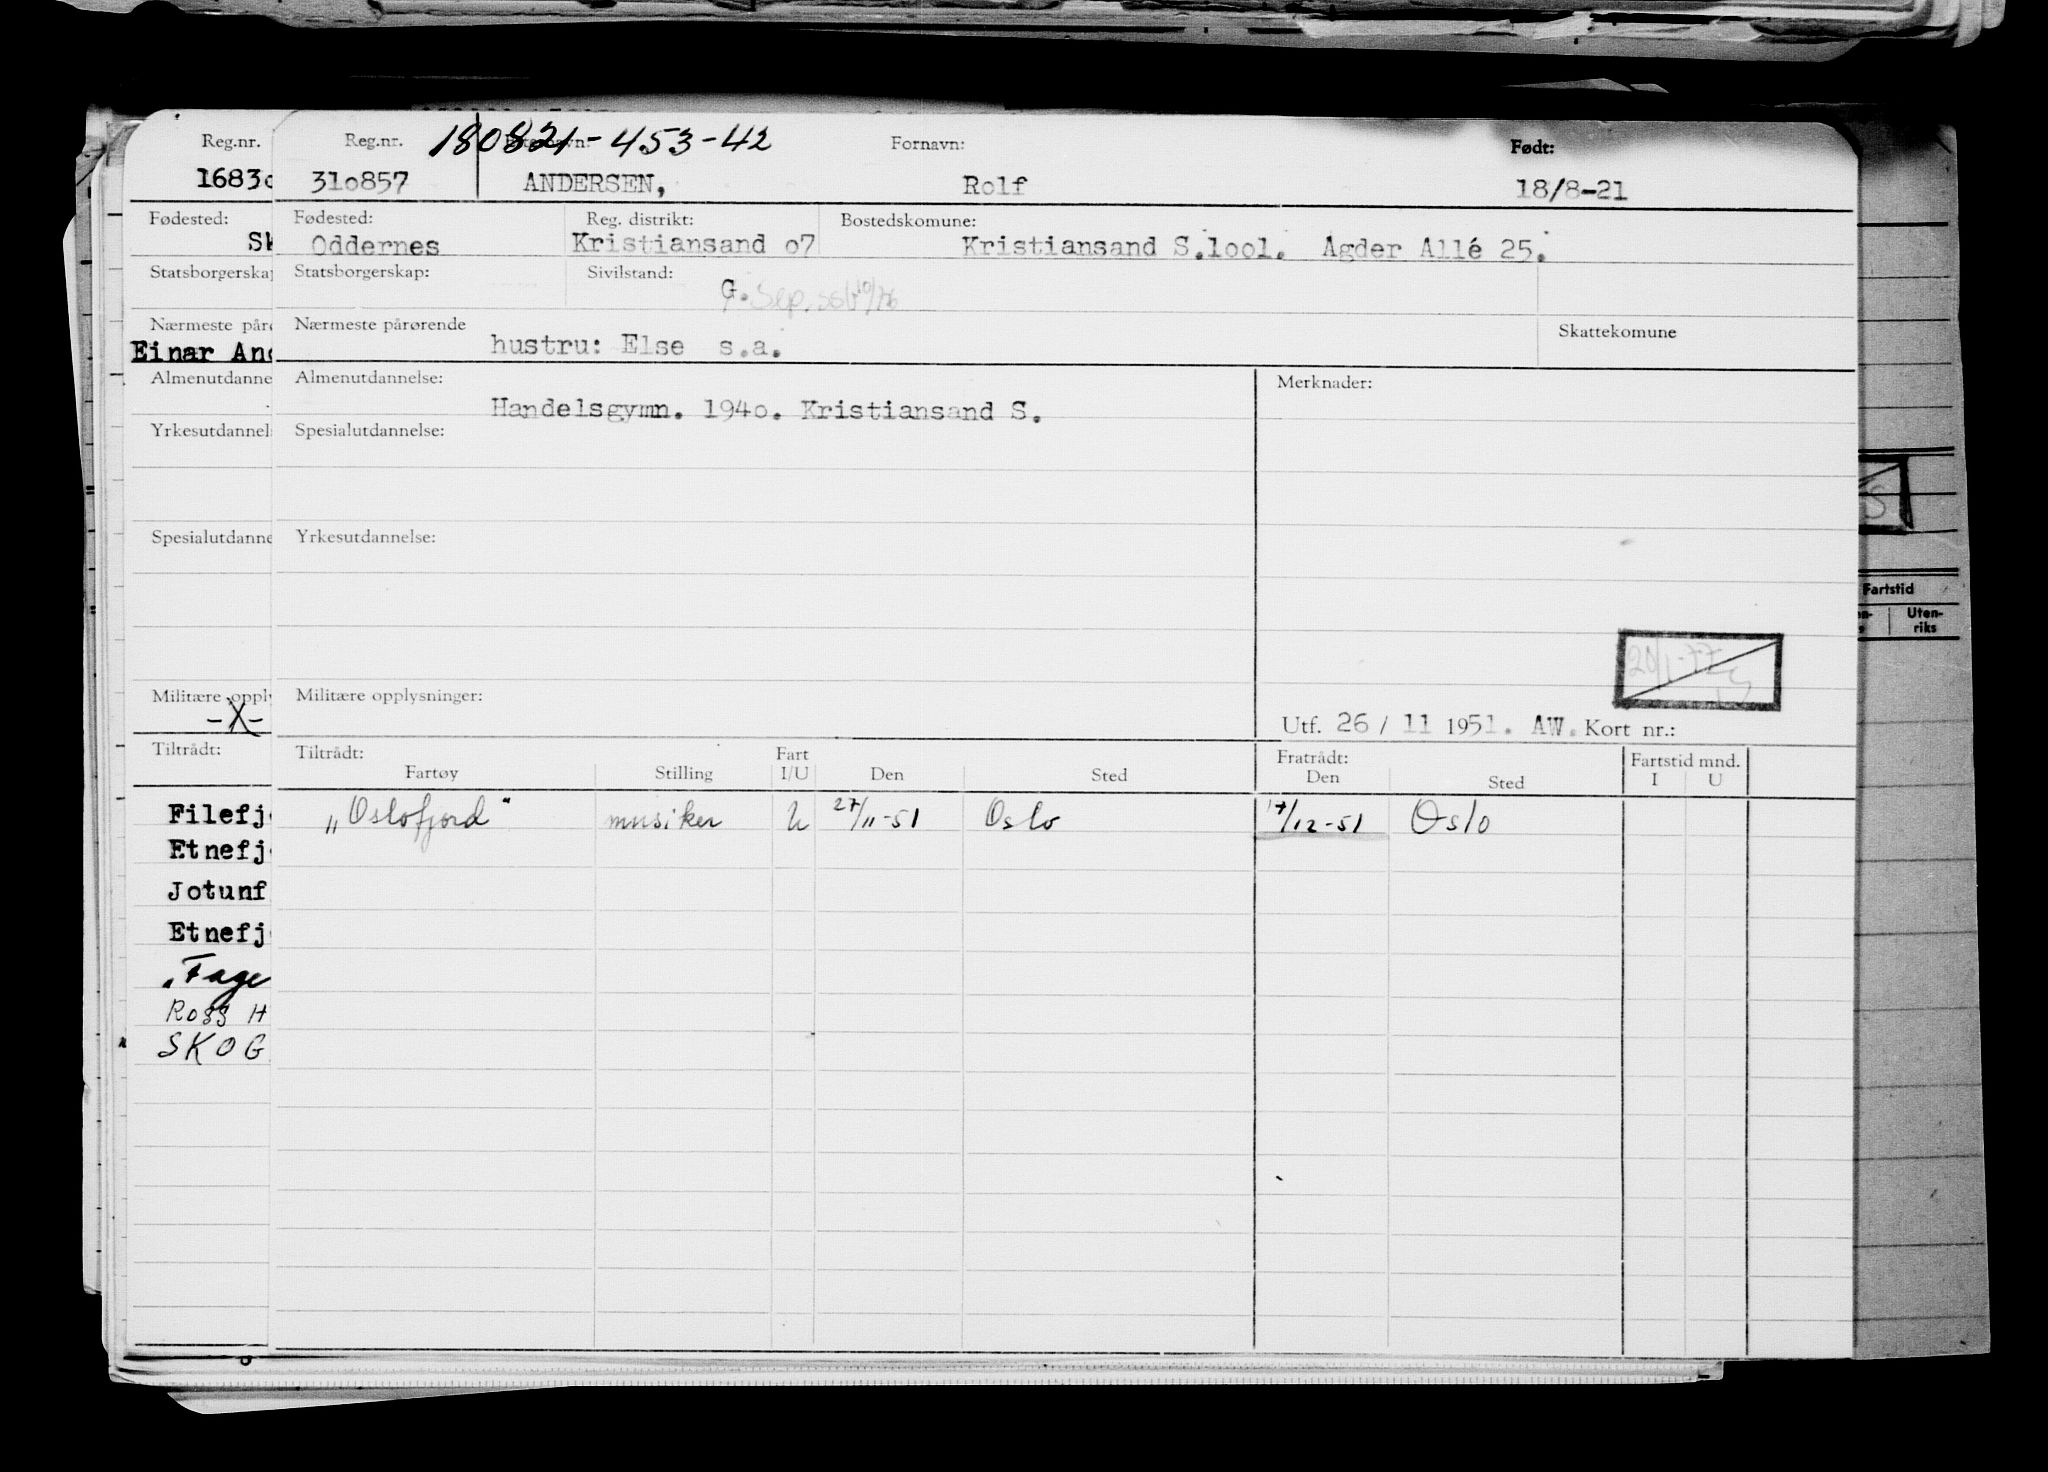 Reg.nr. Reg.nr. 180821-453-42 Fornavn: Født:
1683o 31o857 ANDERSEN, Rolf 18/8-21
Fødested: Fødested: Reg. distrikt: Bostedskomune:
Sk Oddernes Kristiansand o7 Kristiansand S.lool. Agder Allé 25.
Statsborgerskap Statsborgerskap: Sivilstand:
G. Sep.
Nærmeste påre Nærmeste pårørende Skattekomune
Einar And hustru: Else s.a.
Almenutdanne Almenutdannelse: Merknader:
Handelsgymn. 194o. Kristiansand S.
Yrkesutdannel Spesialutdannelse:
Spesialutdanne Yrkesutdannelse:
20/1-77
Militære opply Militære opplysninger:
-X-
Utf. 26 / 11 1951. AW. Kort nr.:
Tiltrådt: Tiltrådt: Fart Fratrådt: Fartstid mnd.
Fartøy Stilling I/U Den Sted Den Sted I U
Filefj „Oslofjord" musiker U 27/11-51 Oslo 17/12-51 Oslo
Etnefj
Jotunf
Etnefj
„Fage
Ross H
SKOG
Fartstid
Uten-
riks
S